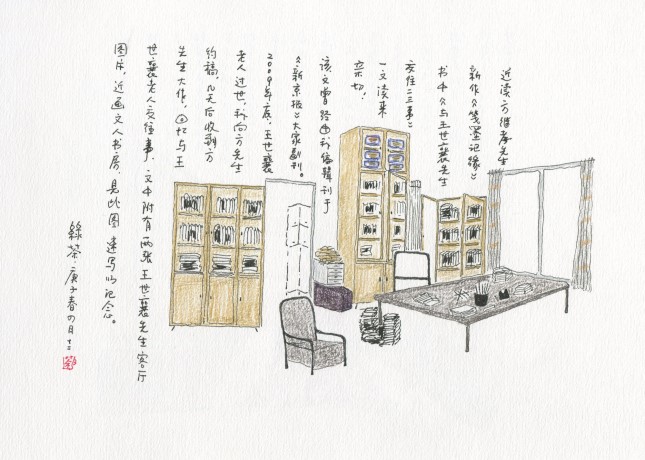 近读方继孝先生
新作《笺墨记缘》
书中《与王世襄先生
交往二三事》
一文读来
亲切，
该文曾经由我编辑刊于
《新京报》大家副刊。
2009年底，王世襄
老人过世，我向方先生
约稿，几天后收到方
先生大作，回忆与王
世襄老人交往事，文中附有两张王世襄先生客厅
图片，近画文人书房，见此图速写以记念。
綠茶·庚子春の月